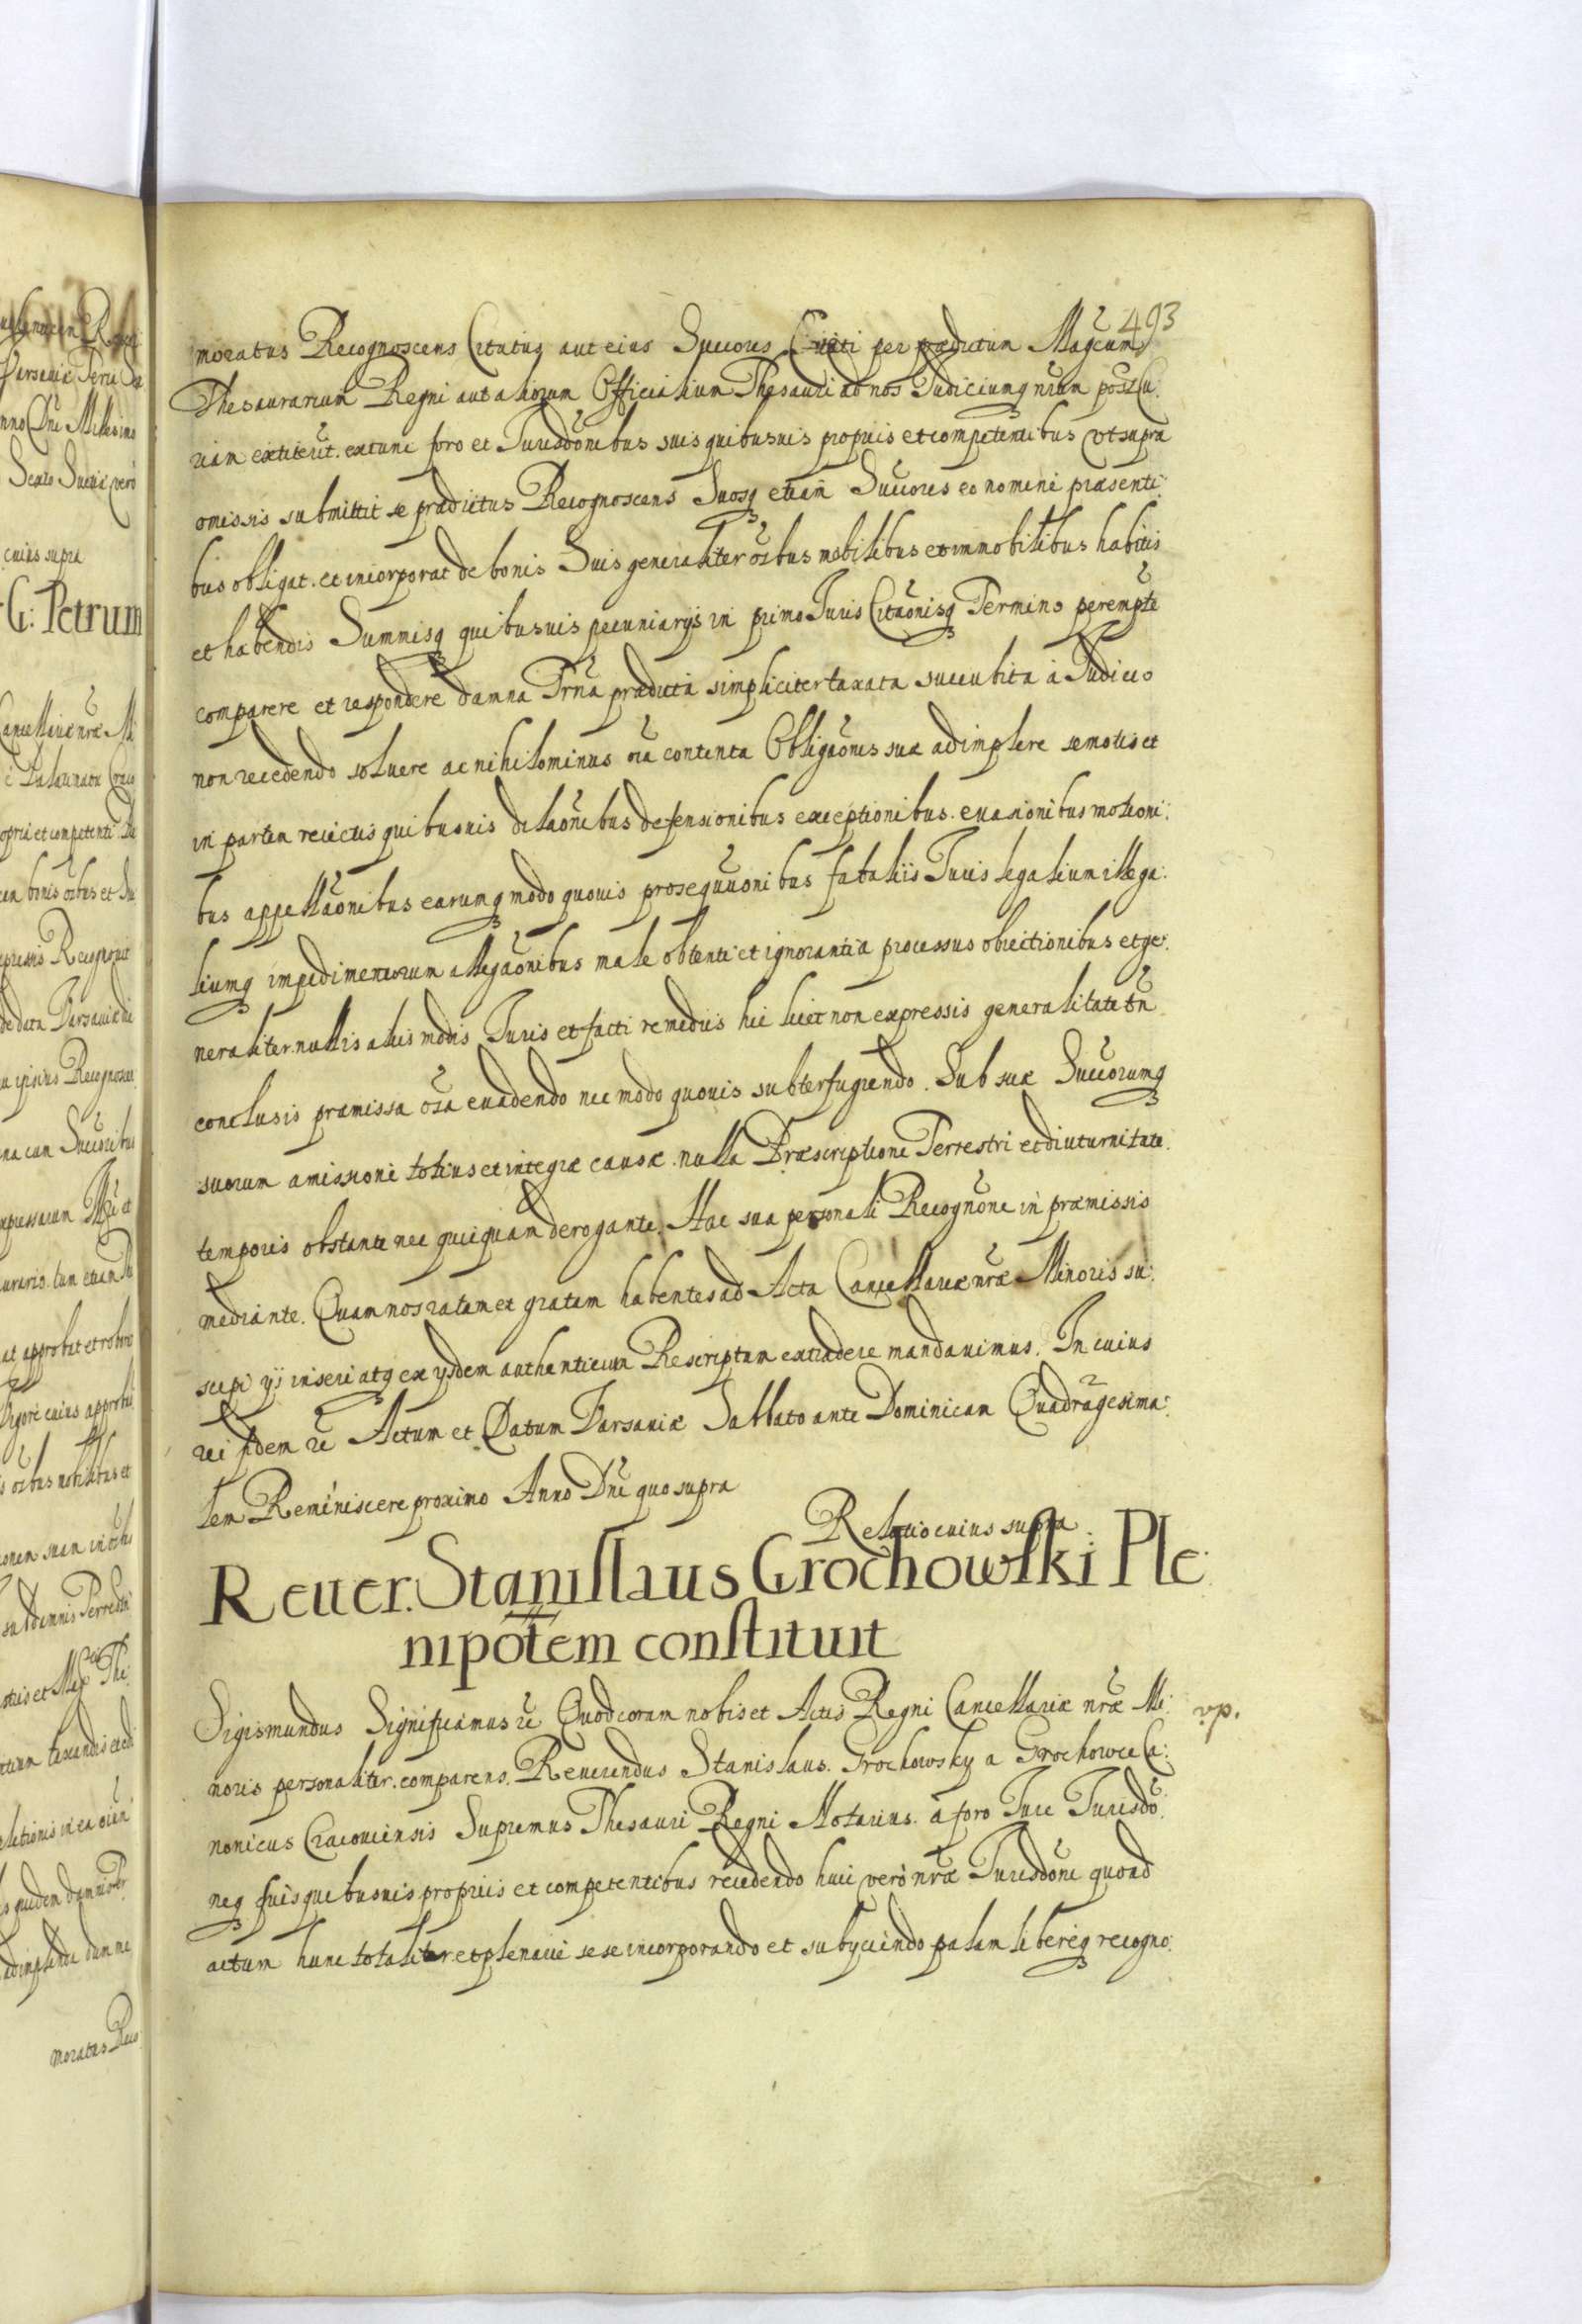 493
moratus Recognoscens Citatus aut eius Succores Citati per prædictum Magcum
Thesaurarium Regni aut aliorum Officialium Thesauri ad nos Iudiciumq nrum post Cu:
riam extiterit. extunc foro et Iurisdonibus suis quibusuis proprijs et competentibus vt supra
omissis submittit se prædictus Recognoscens Suosq etiam Succores eo nomine præsenti:
bus obligat. et incorporat de bonis Suis generaliter oibus mobilibus et immobilibus habitis
et habendis Summisq quibusuis pecuniarijs in primo Iuris Citaonisq Termino perempte
comparere et respondere damna Trna prædicta simpliciter taxata succubita à Iudicio
non recedendo soluere ac nihilominus oia contenta Obligaonis suæ adimplere semotis et
in partem reiectis quibusuis dilaonibus defensionibus exceptionibus. euasionibus motioni:
bus appellaonibus earumq modo quouis prosequuonibus fataliis Iuris legalium illega:
liumq impedimentorum allegaonibus male obtenti et ignorantia processus obiectionibus et ge:
neraliter nullis aliis modis Iuris et facti remediis hic licet non expressis generalitate tn
conclusis præmissa oia euadendo nec modo quouis subterfugiendo. Sub suæ Succorumq
suorum amissione totius et integræ causæ. nulla Præscriptione Terrestri et diuturnitate
temporis obstante nec quicquam derogante. Hac sua personali Recognone in præmissis
mediante. Quam nos ratam et gratam habentes ad Acta Cancellariæ nræ Minoris su:
scepi ijs inseri atq ex ijsdem authenticum Rescriptum extradere mandauimus. In cuius
rei fidem rc Actum et Datum Varsauiæ Sabbato ante Dominicam Quadragesima:
lem Reminiscere proximo Anno Dni quo supra
Relatio cuius supra
Reuer. Stanislaus Grochowski Ple:
nipotem constituit
Sigismundus Significamus rc Quod coram nobis et Actis Regni Cancellariæ nræ Mi:
vp.
noris personaliter. comparens. Reuerendus Stanislaus. Grochowsky a Grochowce Ca:
nonicus Cracouiensis Supremus Thesauri Regni Notarius. a foro Iure Iurisdo:
neq suis quibusuis propriis et competentibus recedendo huic verò nræ Iurisdoni quoad
actum hunc totaliter et plenariè sese incorporando et subijciendo palam liberèq recogno: